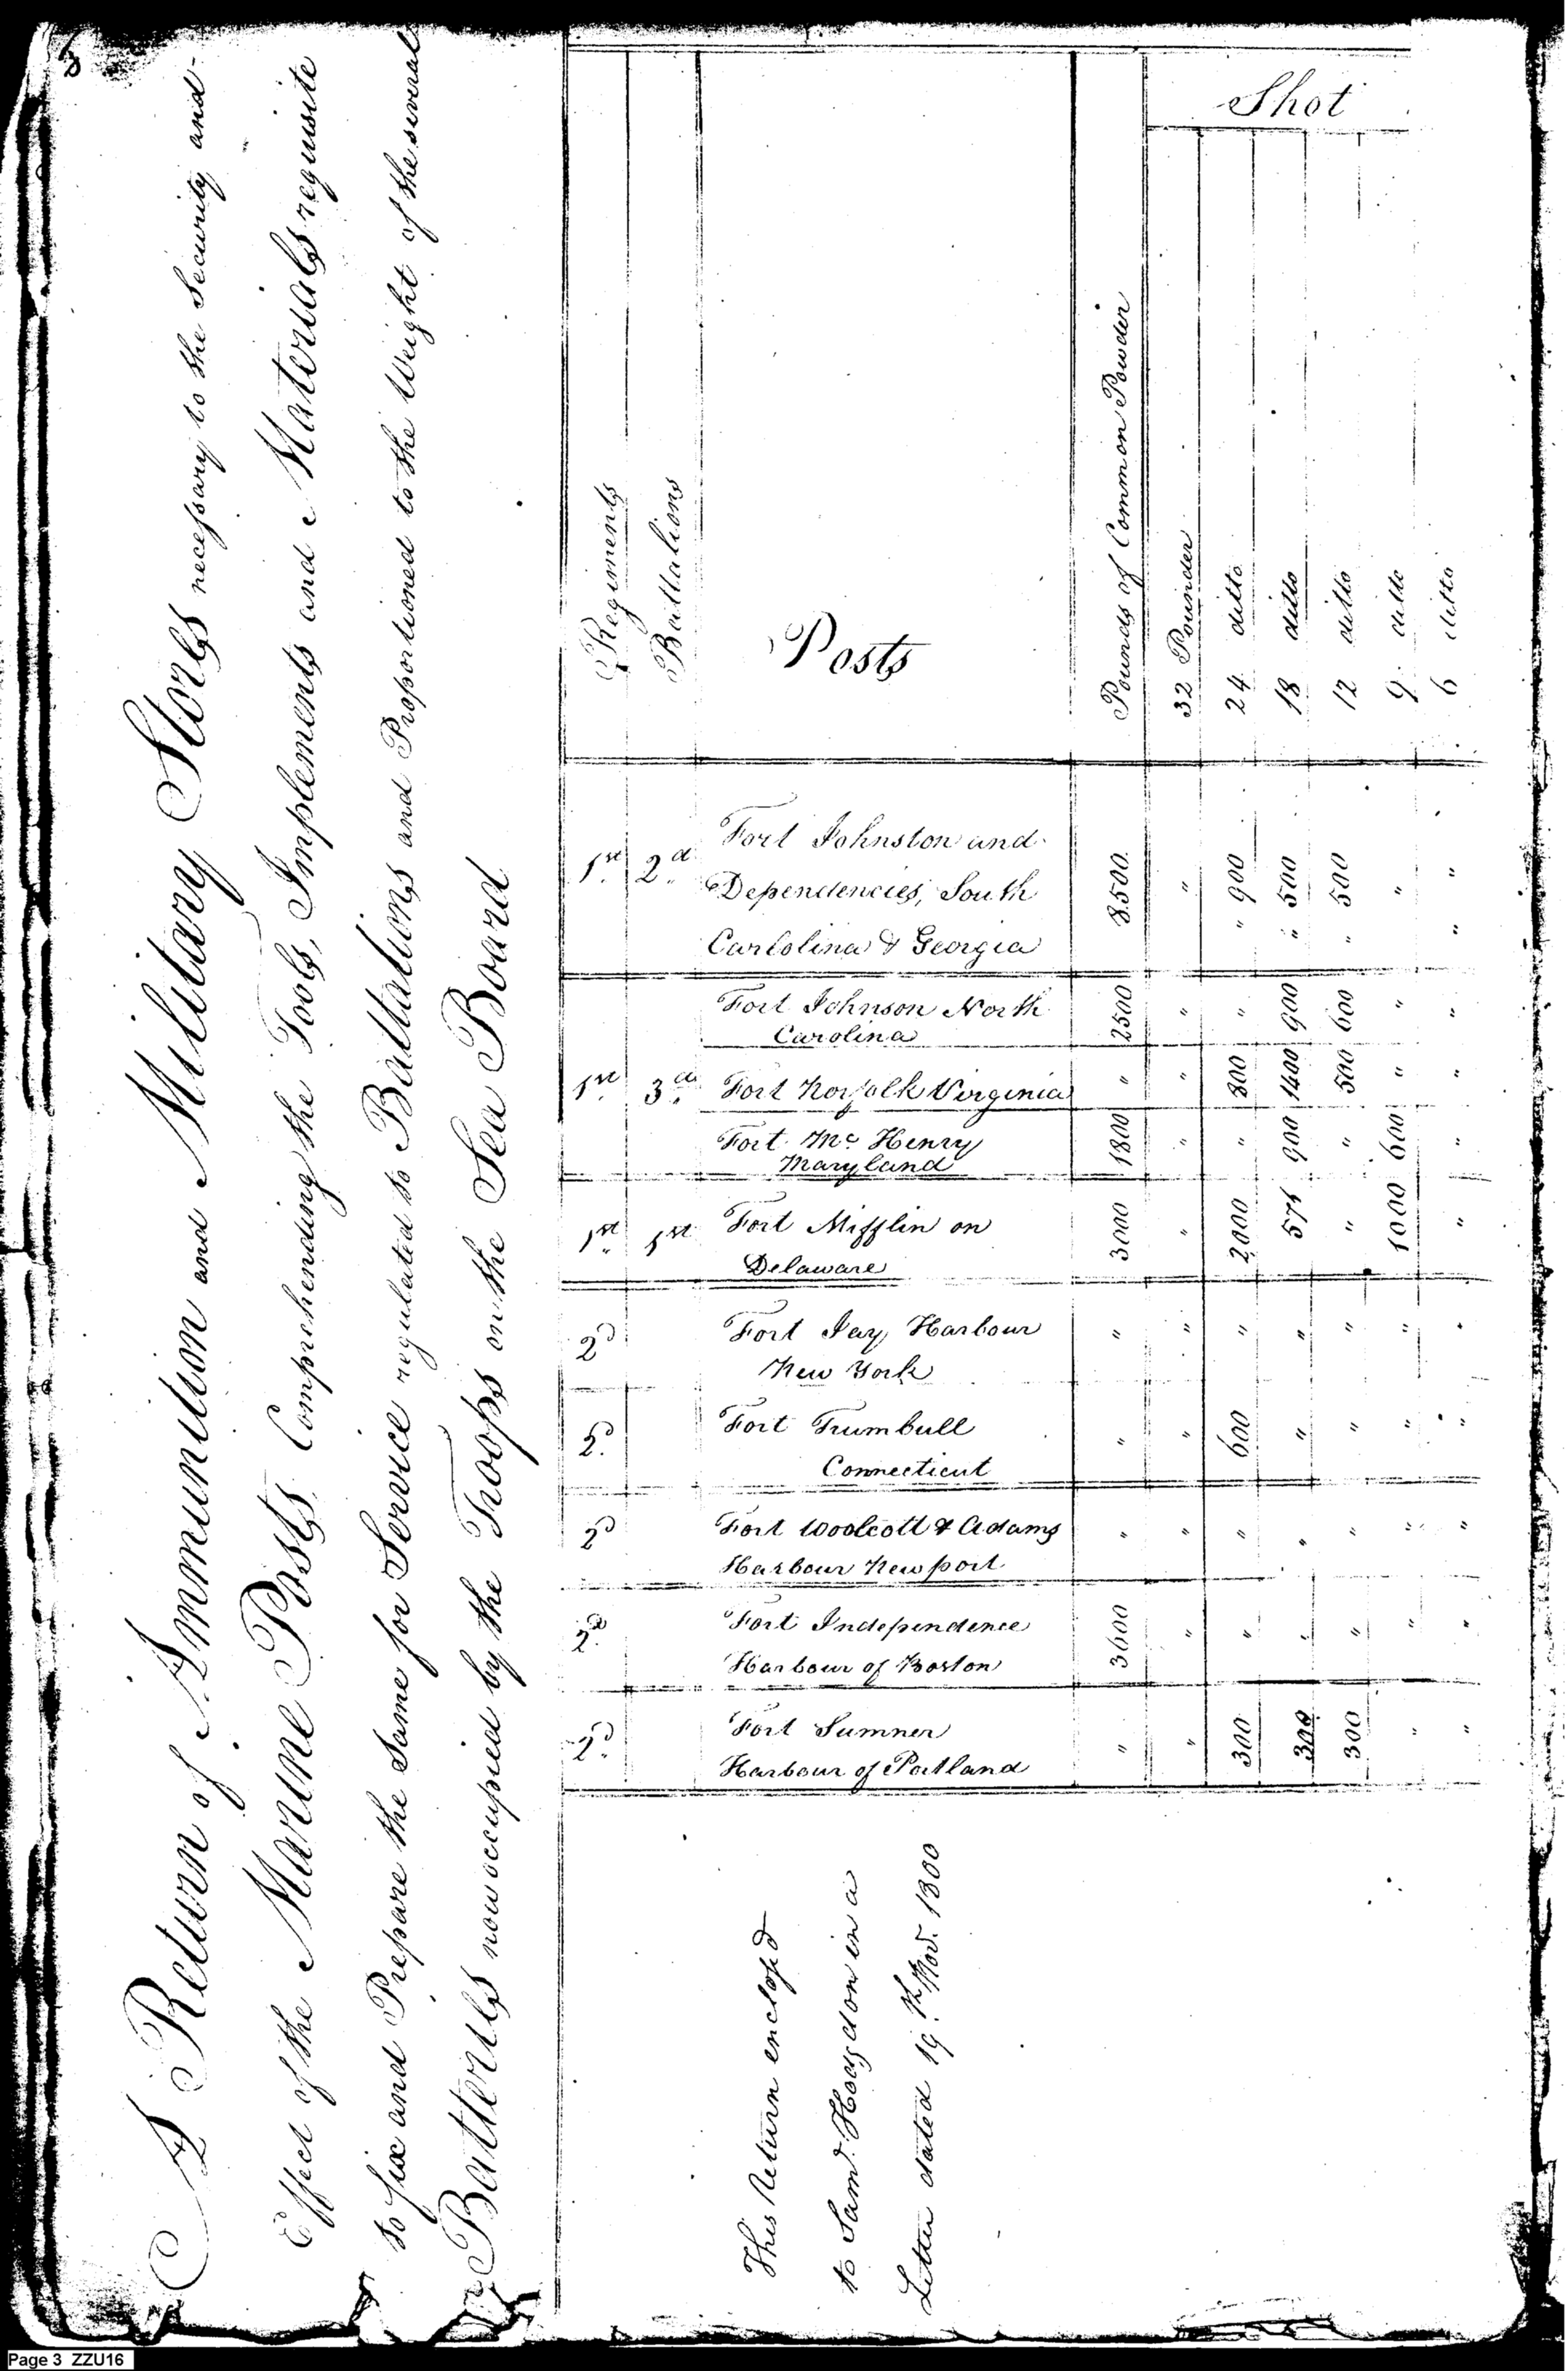 8
A Return of Ammunition and Military Stores necessary to the Security and
Effect of the Marine Posts Comprehending the Tools, Implements and Materials requisite
to fix and Prepare the Same for Service regulated to Battalions and Proportioned to the Weight of the several
Batteries now occupied by the Troops on the Sea Board
Shot
Regiments
Battalions
Posts
Pounds of Common Powder
32 Pounder
24 ditto
18 ditto
12 ditto
9 ditto
6 ditto
1st. 2d. Fort Johnston and Dependencies, South Carlolina & Georgia 8500 " " 900 " 500 " 500 " "
Fort Johnson North Carolina 2500 " " 900 600 " "
1st. 3d. Fort Norfolk Virginia " " 800 1400 500 " "
Fort Mc Henry Maryland 1800 " " 900 " 600 "
1st. 1st Fort Mifflin on Delaware 3000 " 2000 571 " 1000 "
2d Fort Jay Harbour New York " " " " " " "
2d. Fort Trumbull Connecticut " " 600 " " " "
2d Fort Woolcott & Adams Harbour Newport " " " " " " "
2d. Fort Independence Harbour of Boston 3600 " " " " " "
2d. Fort Sumner Harbour of Portland " " 300 300 300 " "
This Return enclosed
to Saml. Hodgdon in a
Letter dated 19.th Nov. 1800
Page 3 ZZU16